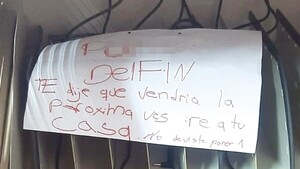 DelFiN
TE dije que vendria la
proxima ves ire a tu
casa. No deviste poner 1